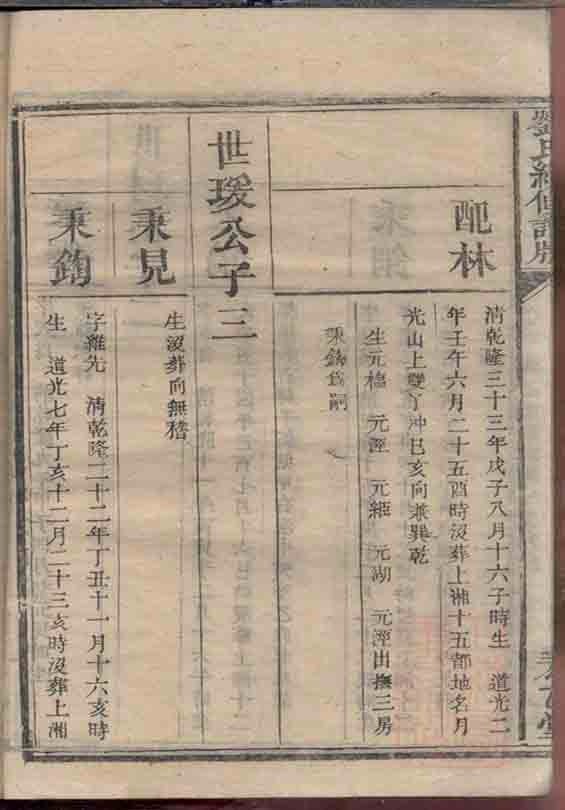 配林
清乾隆三十三年戊子八月十六子時生　道光二
年壬午六月二十五酉時沒葬上湘十五都地名月
光山上雙丫沖巳亥向兼巽乾
生元橋　元溼　元經　元湖　元溼出撫三房
秉鈞為嗣
世瑗公子三
秉見
生沒葬向無稽
秉鈞
字維先　清乾隆二十二年丁丑十一月十六亥時
生　道光七年丁亥十二月二十三亥時沒葬上湘